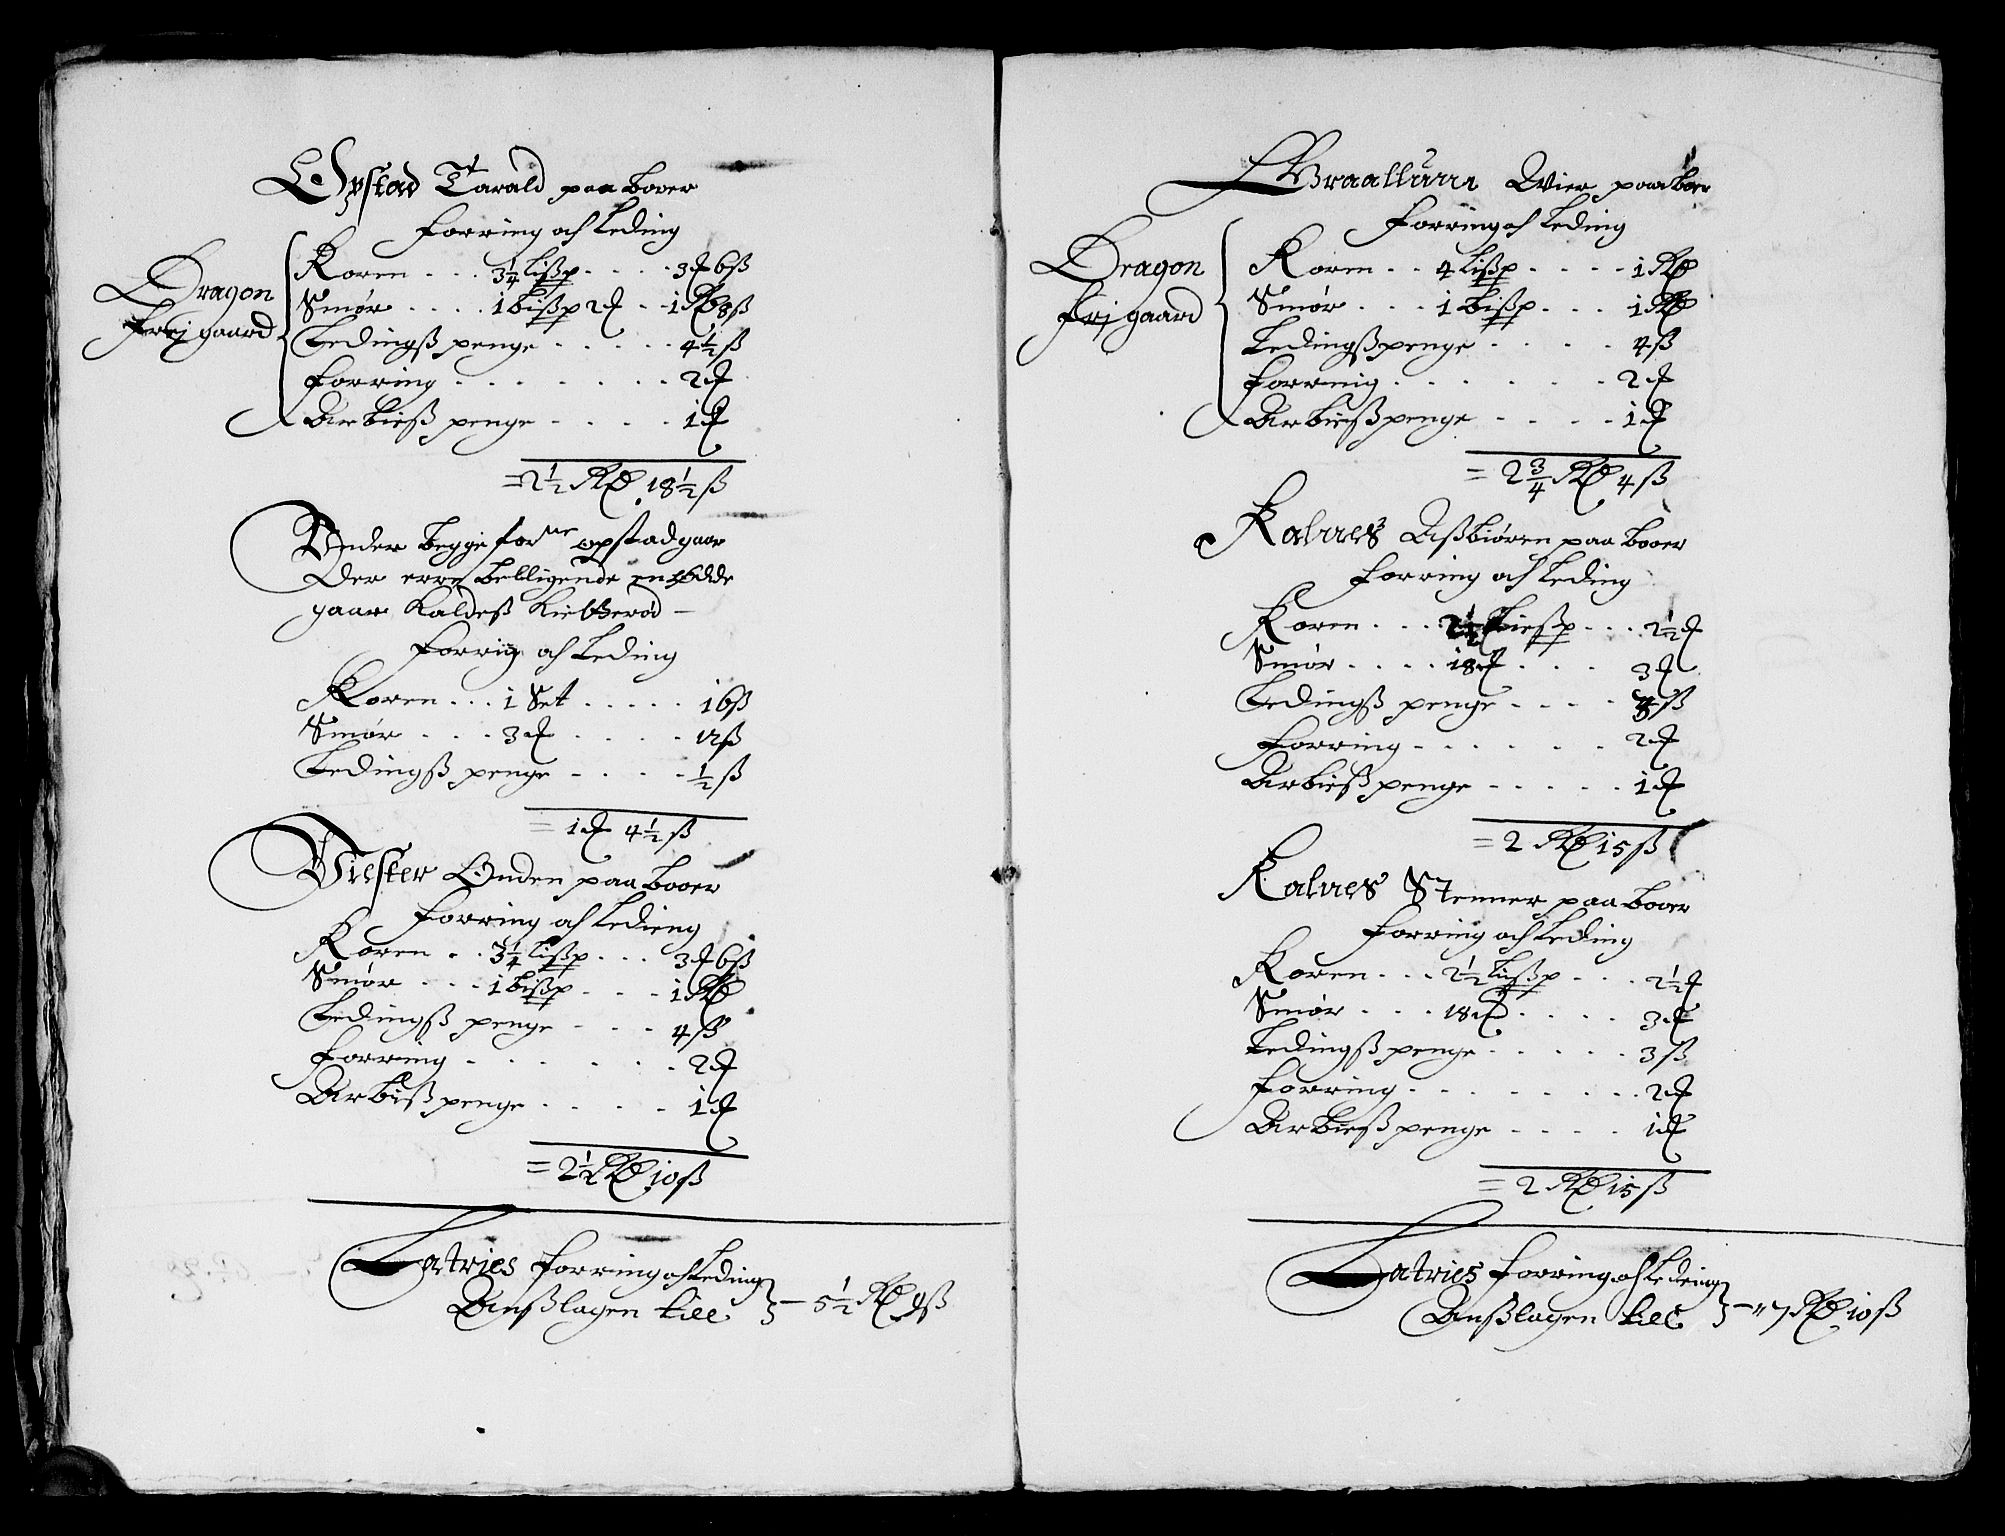 Opstad Tarald paa boer
Forring och Leding
Dragon
frj gaard
Koren . . . 3¼ Lißp . . . . . 3 ₰ 6 ß
Smør . . . . 1 bißp 2 ₰ . . 1 RD 8 ß
Ledingß penge . . . . . . 4½ ß
forring . . . . . . . . 2 ₰
Arbieß penge . . . . . 1 ₰
= 2½ RD 18½ ß
Vnder begge forne opstad gaar
Der erre belligende en øde
gaar Kaldeß
Forrig och Leding
Koren . . . 1 Set . . . . . 16 ß
Smør . . . 3 ₰ . . . . . 12 ß
Ledingß penge . . . . . ½ ß
= 1 ₰ 4½ ß
Viester Onden paa boer
Forring och Ledieng
Koren . . 3¼ Lißp . . . 3 ₰ 6 ß
Smør . . . 1 bißp . . . 1 RD
Ledingß penge . . . . 4 ß
forring . . . . . . . 2 ₰
Arbiß penge . . . . . 1 ₰
= 2½ RD 10 ß
Latries forring och Leding
Anßlagen till } — 5½ RD 9 ß
Braallum Wier paa boer
Forring och Leding
Dragon
frj gaard
Koren . . 4 Lißp . . . . . 1 RD
Smør . . . 1 bißp . . . 1 RD
Ledingß penge . . . . . 4 ß
forring . . . . . . . 2 ₰
Arbieß penge . . . . . 1 ₰
= 2¾ RD 4 ß
Kalnes Aßbiøren paa boer
Forring och Leding
Koren . . . 2½ Ließp . . . . 2½ ₰
Smør . . . . 18 ₰ . . . 3 ₰
Ledingß penge . . . . 3 ß
forring . . . . . . . 2 ₰
Arbieß penge . . . . . . 1 ₰
= 2 RD 15 ß
Kalnes Stenner paa boer
Forring och Leding
Koren . . . 2½ Lißp . . . 2½ ₰
Smør . . . 18 ₰ . . . . . 3 ₰
Ledingß penge . . . . . . 3 ß
forring . . . . . . . . 2 ₰
Arbieß penge . . . . . 1 ₰
= 2 RD 15 ß
Latries forring och Leding
Anßlagen till } — 7 RD 10 ß